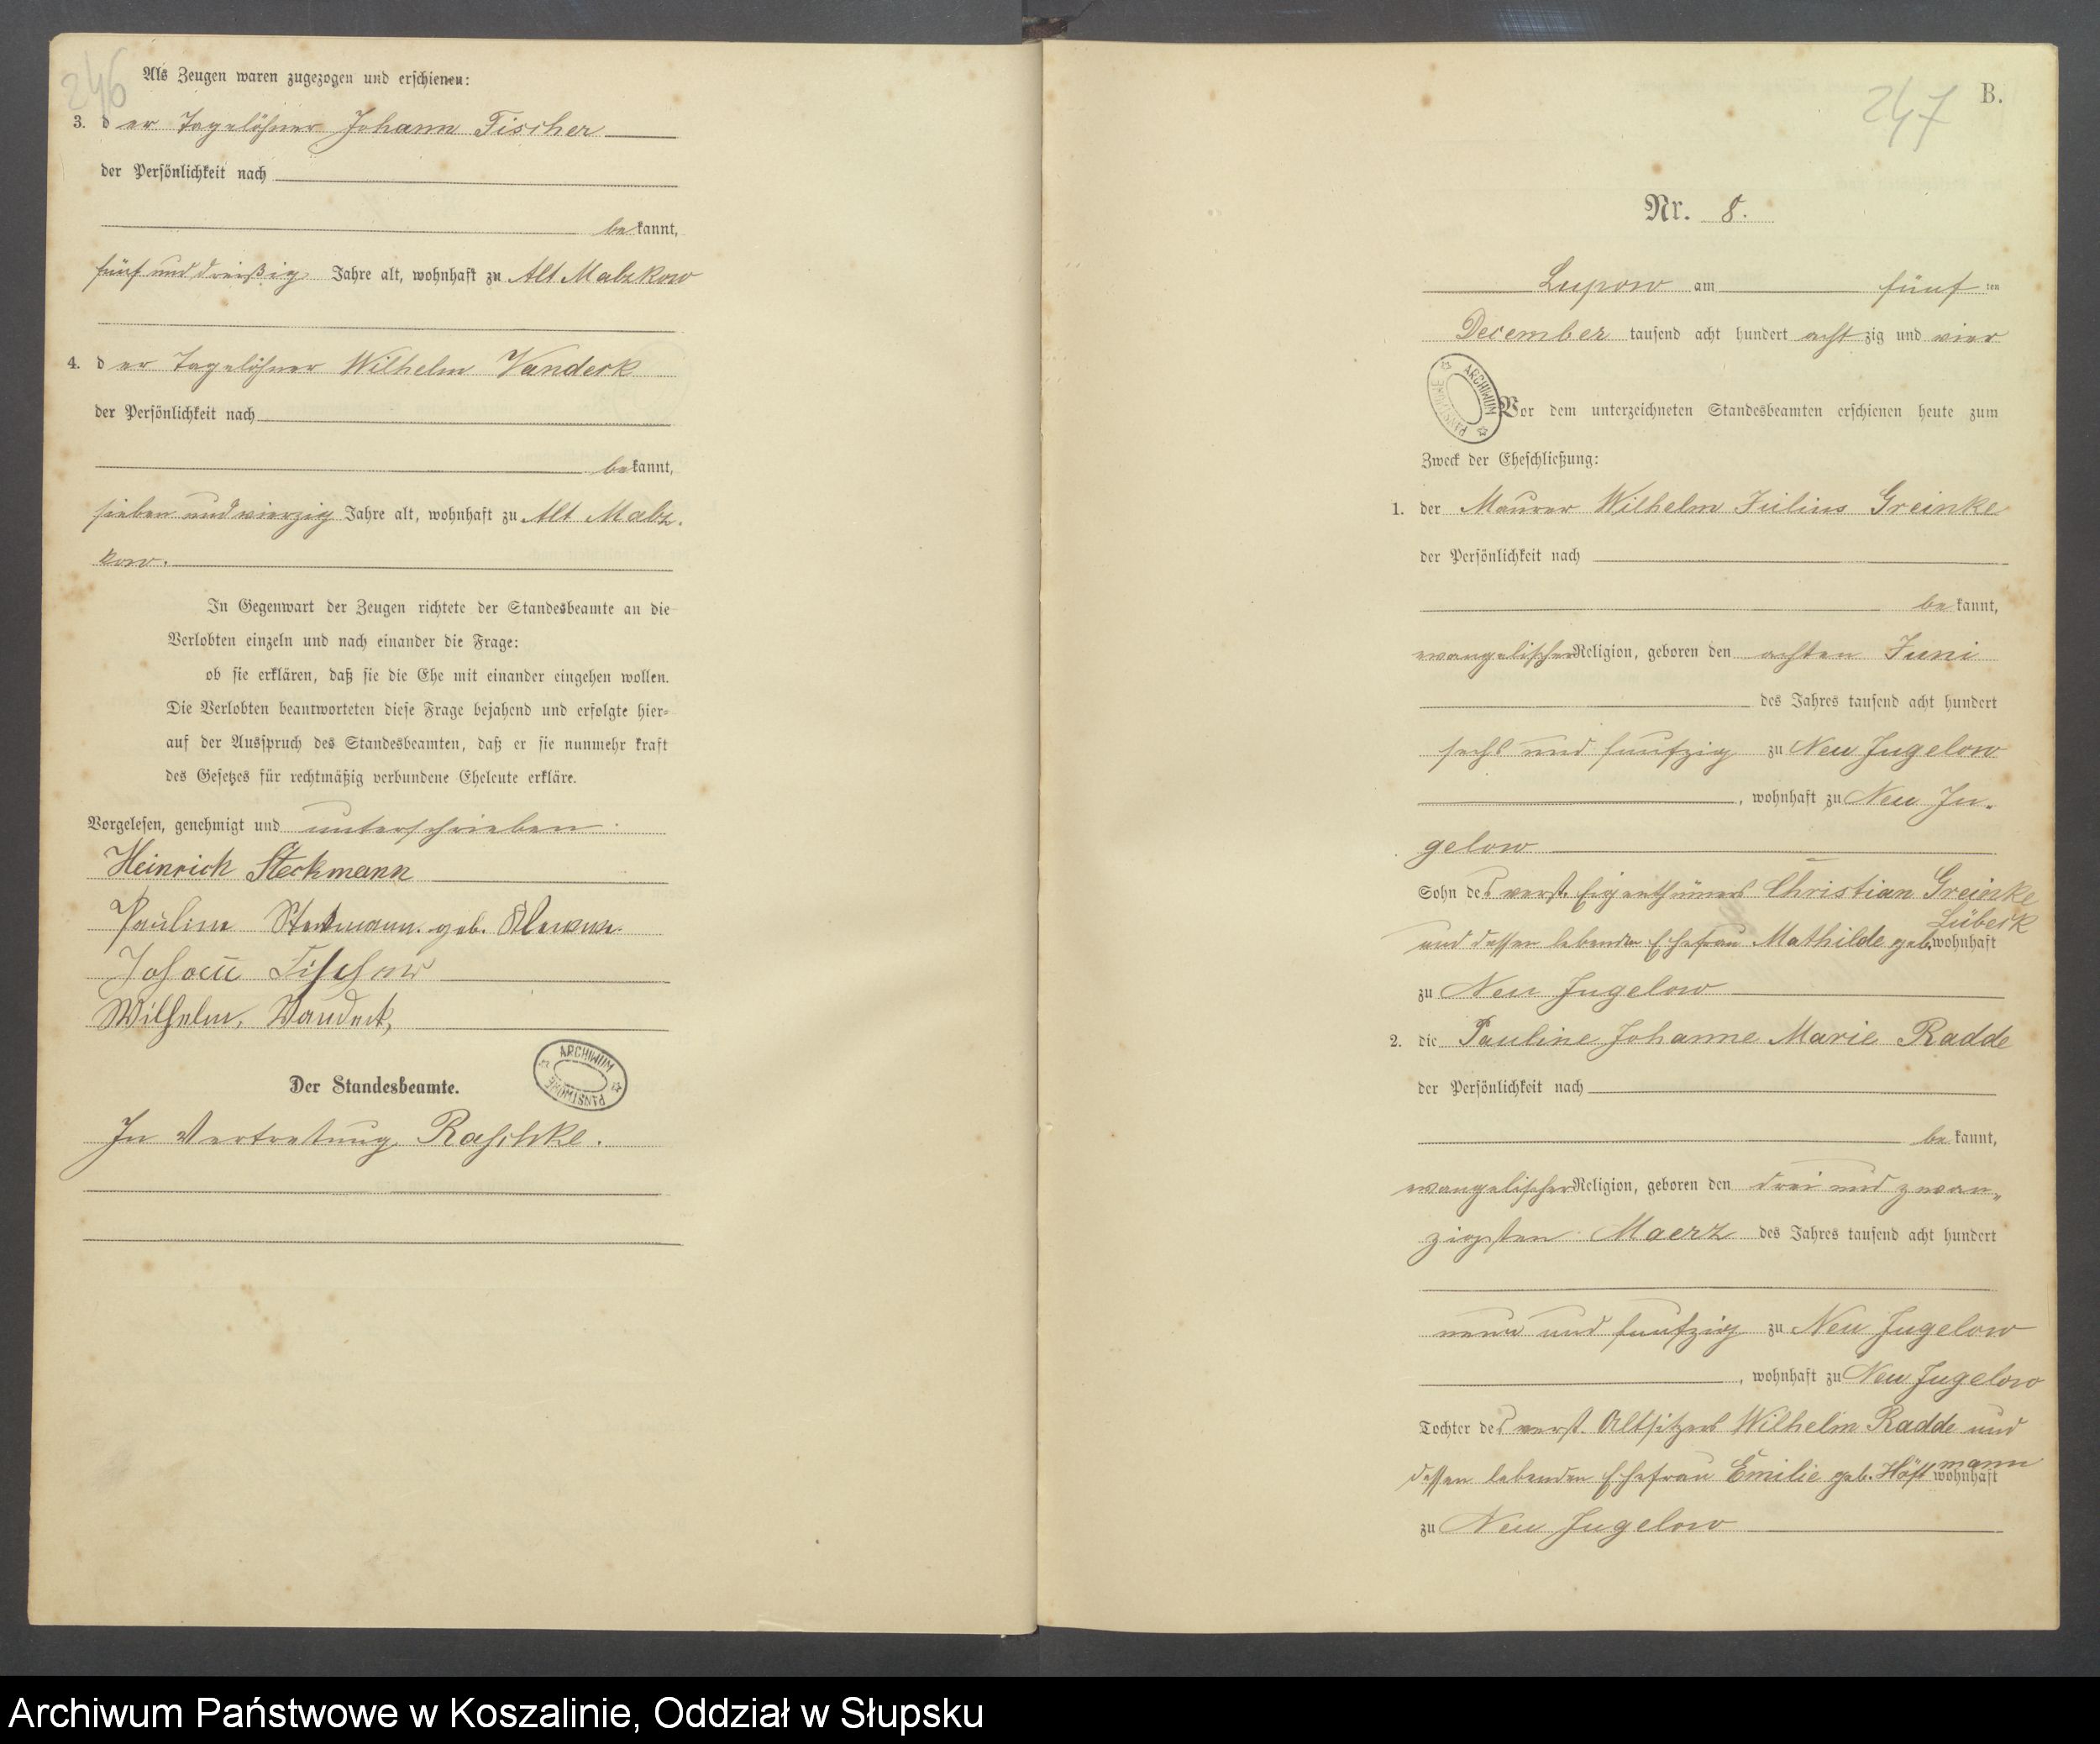 246
Als Zeugen waren zugezogen und erschienen:
3. der Tagelöhner Johann Fischer
der Persönlichkeit nach
bekannt,
fünf und dreißig Jahre alt, wohnhaft zu Alt Malzkow
4. der Tagelöhner Wilhelm Vandeck
der Persönlichkeit nach
bekannt,
sieben und vierzig Jahre alt, wohnhaft zu Alt Malz-
kow.
In Gegenwart der Zeugen richtete der Standesbeamte an die
Verlobten einzeln und nach einander die Frage:
ob sie erklären, daß sie die Ehe mit einander eingehen wollen.
Die Verlobten beantworteten diese Frage bejahend und erfolgte hier-
auf der Ausspruch des Standesbeamten, daß er sie nunmehr kraft
des Gesetzes für rechtmäßig verbundene Eheleute erkläre.
Vorgelesen, genehmigt und unterschrieben.
Heinrich Steckmann
Pauline Steckmann. geb.
Johann Fischer
Wilhelm, Wandeck,
Der Standesbeamte.
ARCHIWUM PAŃSTWOWE
In Vertretung Raschke.
247
B.
Nr. 8.
Lupow am fünf ten
December tausend acht hundert achtzig und vier
ARCHIWUM PAŃSTWOWE
Vor dem unterzeichneten Standesbeamten erschienen heute zum
Zweck der Eheschließung:
1. der Maurer Wilhelm Julius Greinke
der Persönlichkeit nach
bekannt,
evangelischer Religion, geboren den achten Juni
des Jahres tausend acht hundert
sechs und funfzig zu Neu Jugelow
, wohnhaft zu Neu Ju-
gelow
Sohn des verst. Eigenthümers Christian Greinke
und dessen lebenden Ehefrau Mathilde geb. Lübeck wohnhaft
zu Neu Jugelow
2. die Pauline Johanne Marie Radde
der Persönlichkeit nach
bekannt,
evangelischer Religion, geboren den drei und zwan-
zigsten Maerz des Jahres tausend acht hundert
neun und funfzig zu Neu Jugelow
, wohnhaft zu Neu Jugelow
Tochter des verst. Altsitzers Wilhelm Radde und
dessen lebenden Ehefrau Emilie geb. Höftmann wohnhaft
zu Neu Jugelow
Archiwum Państwowe w Koszalinie, Oddział w Słupsku